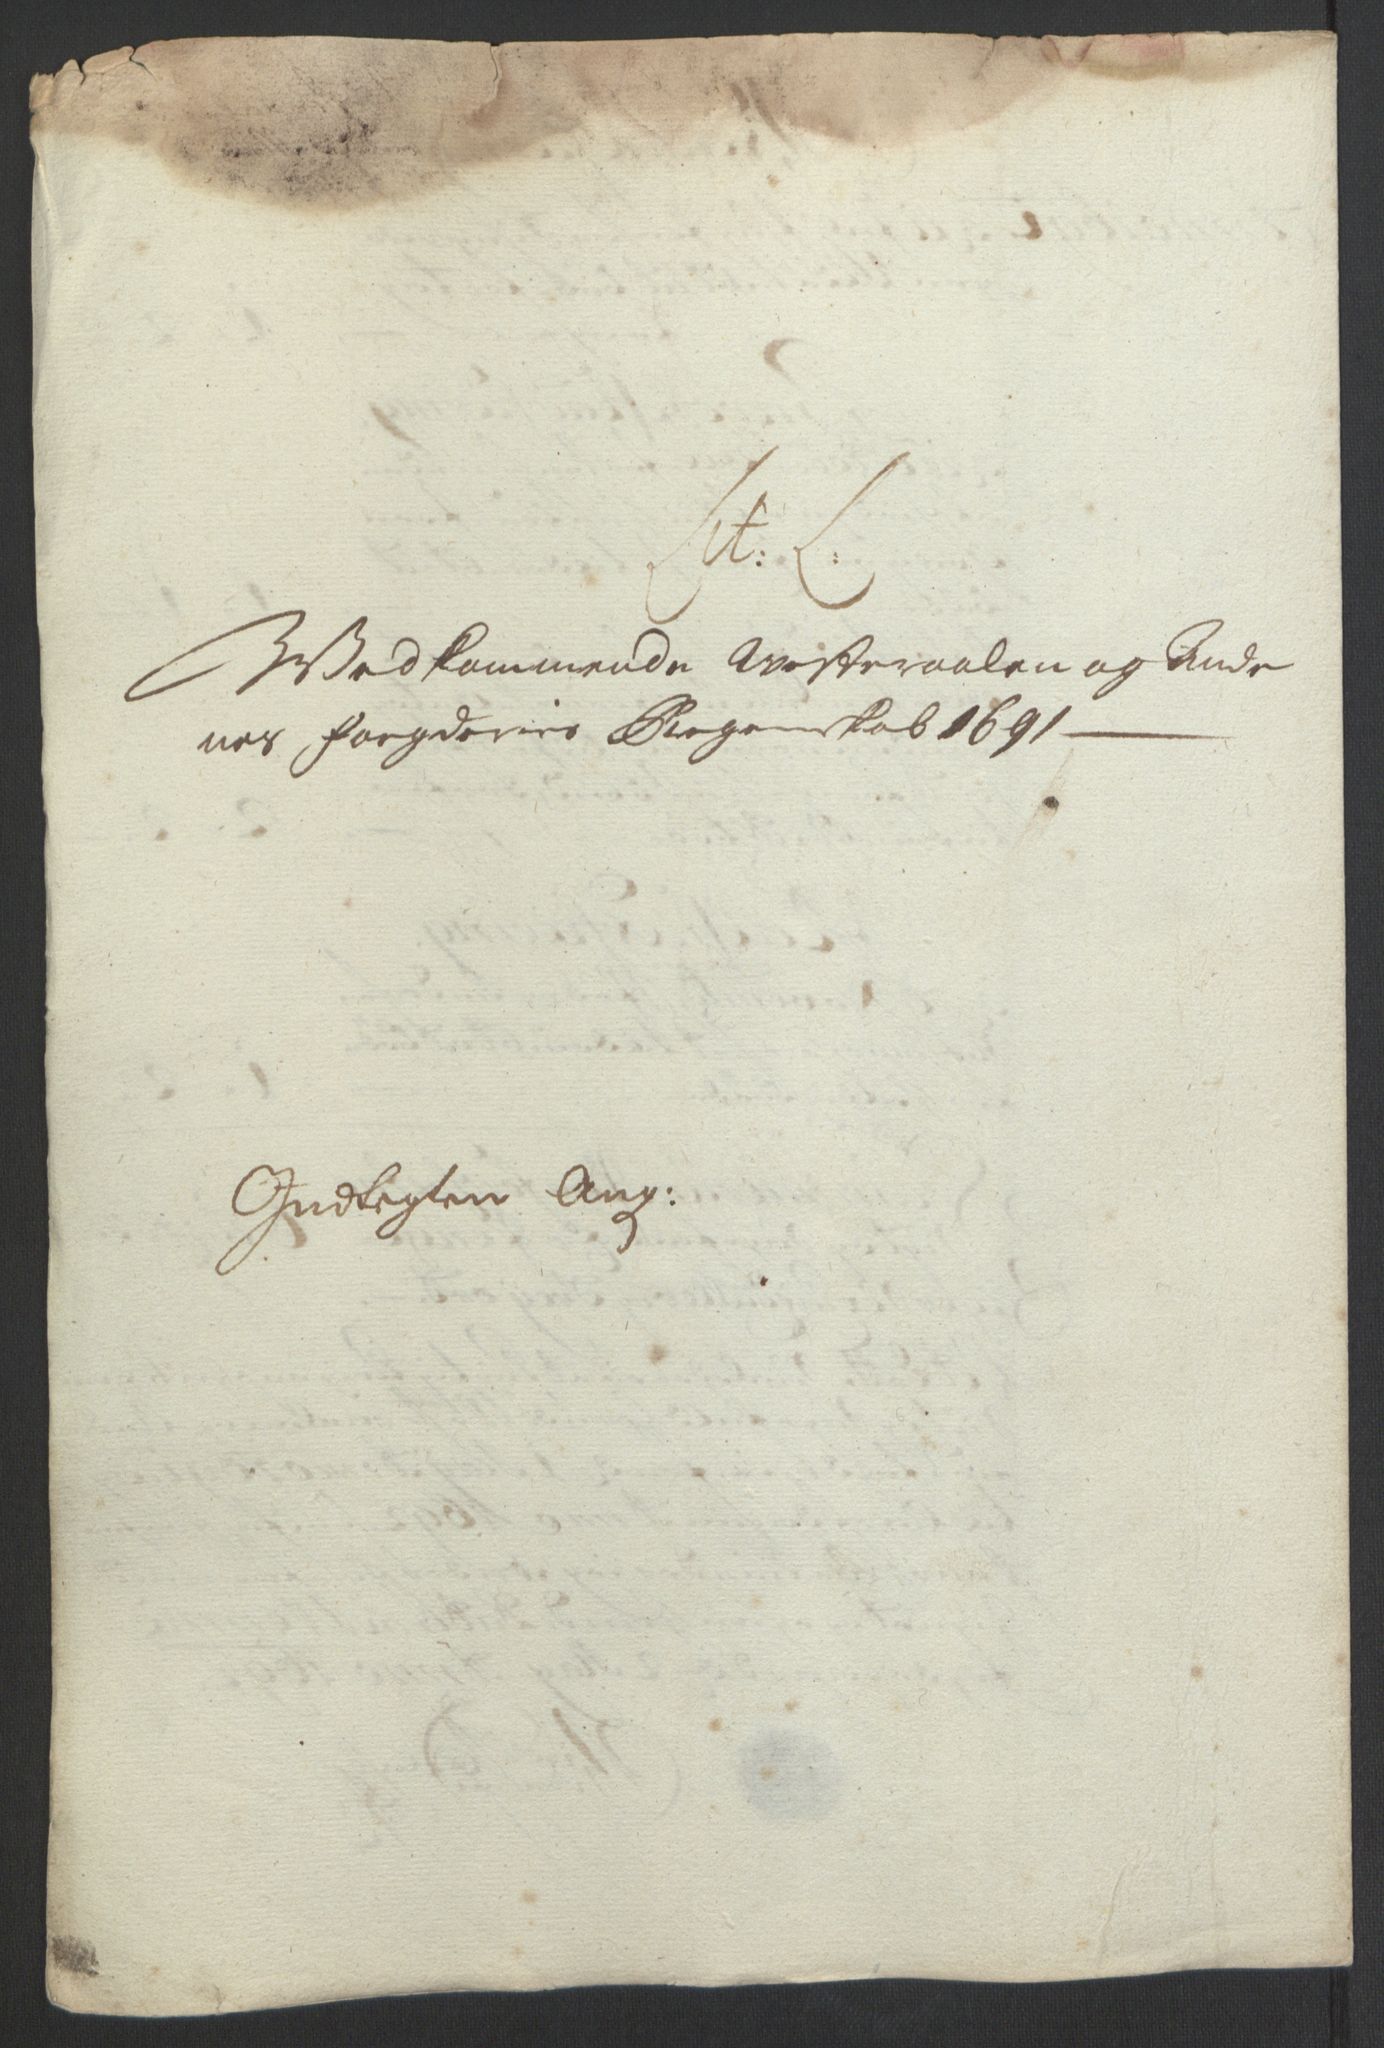 Lit: L:
Wedkommende Westeraalen og Ande
nes fogderies Regenskab 1691
Indtegten Ang: